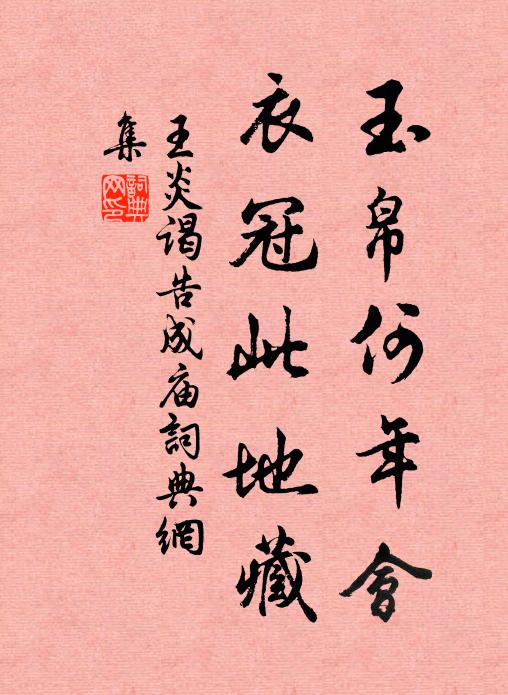 玉帛何年會
衣冠此地藏
王炎谒告成庙詞典網
集
詞典
网印